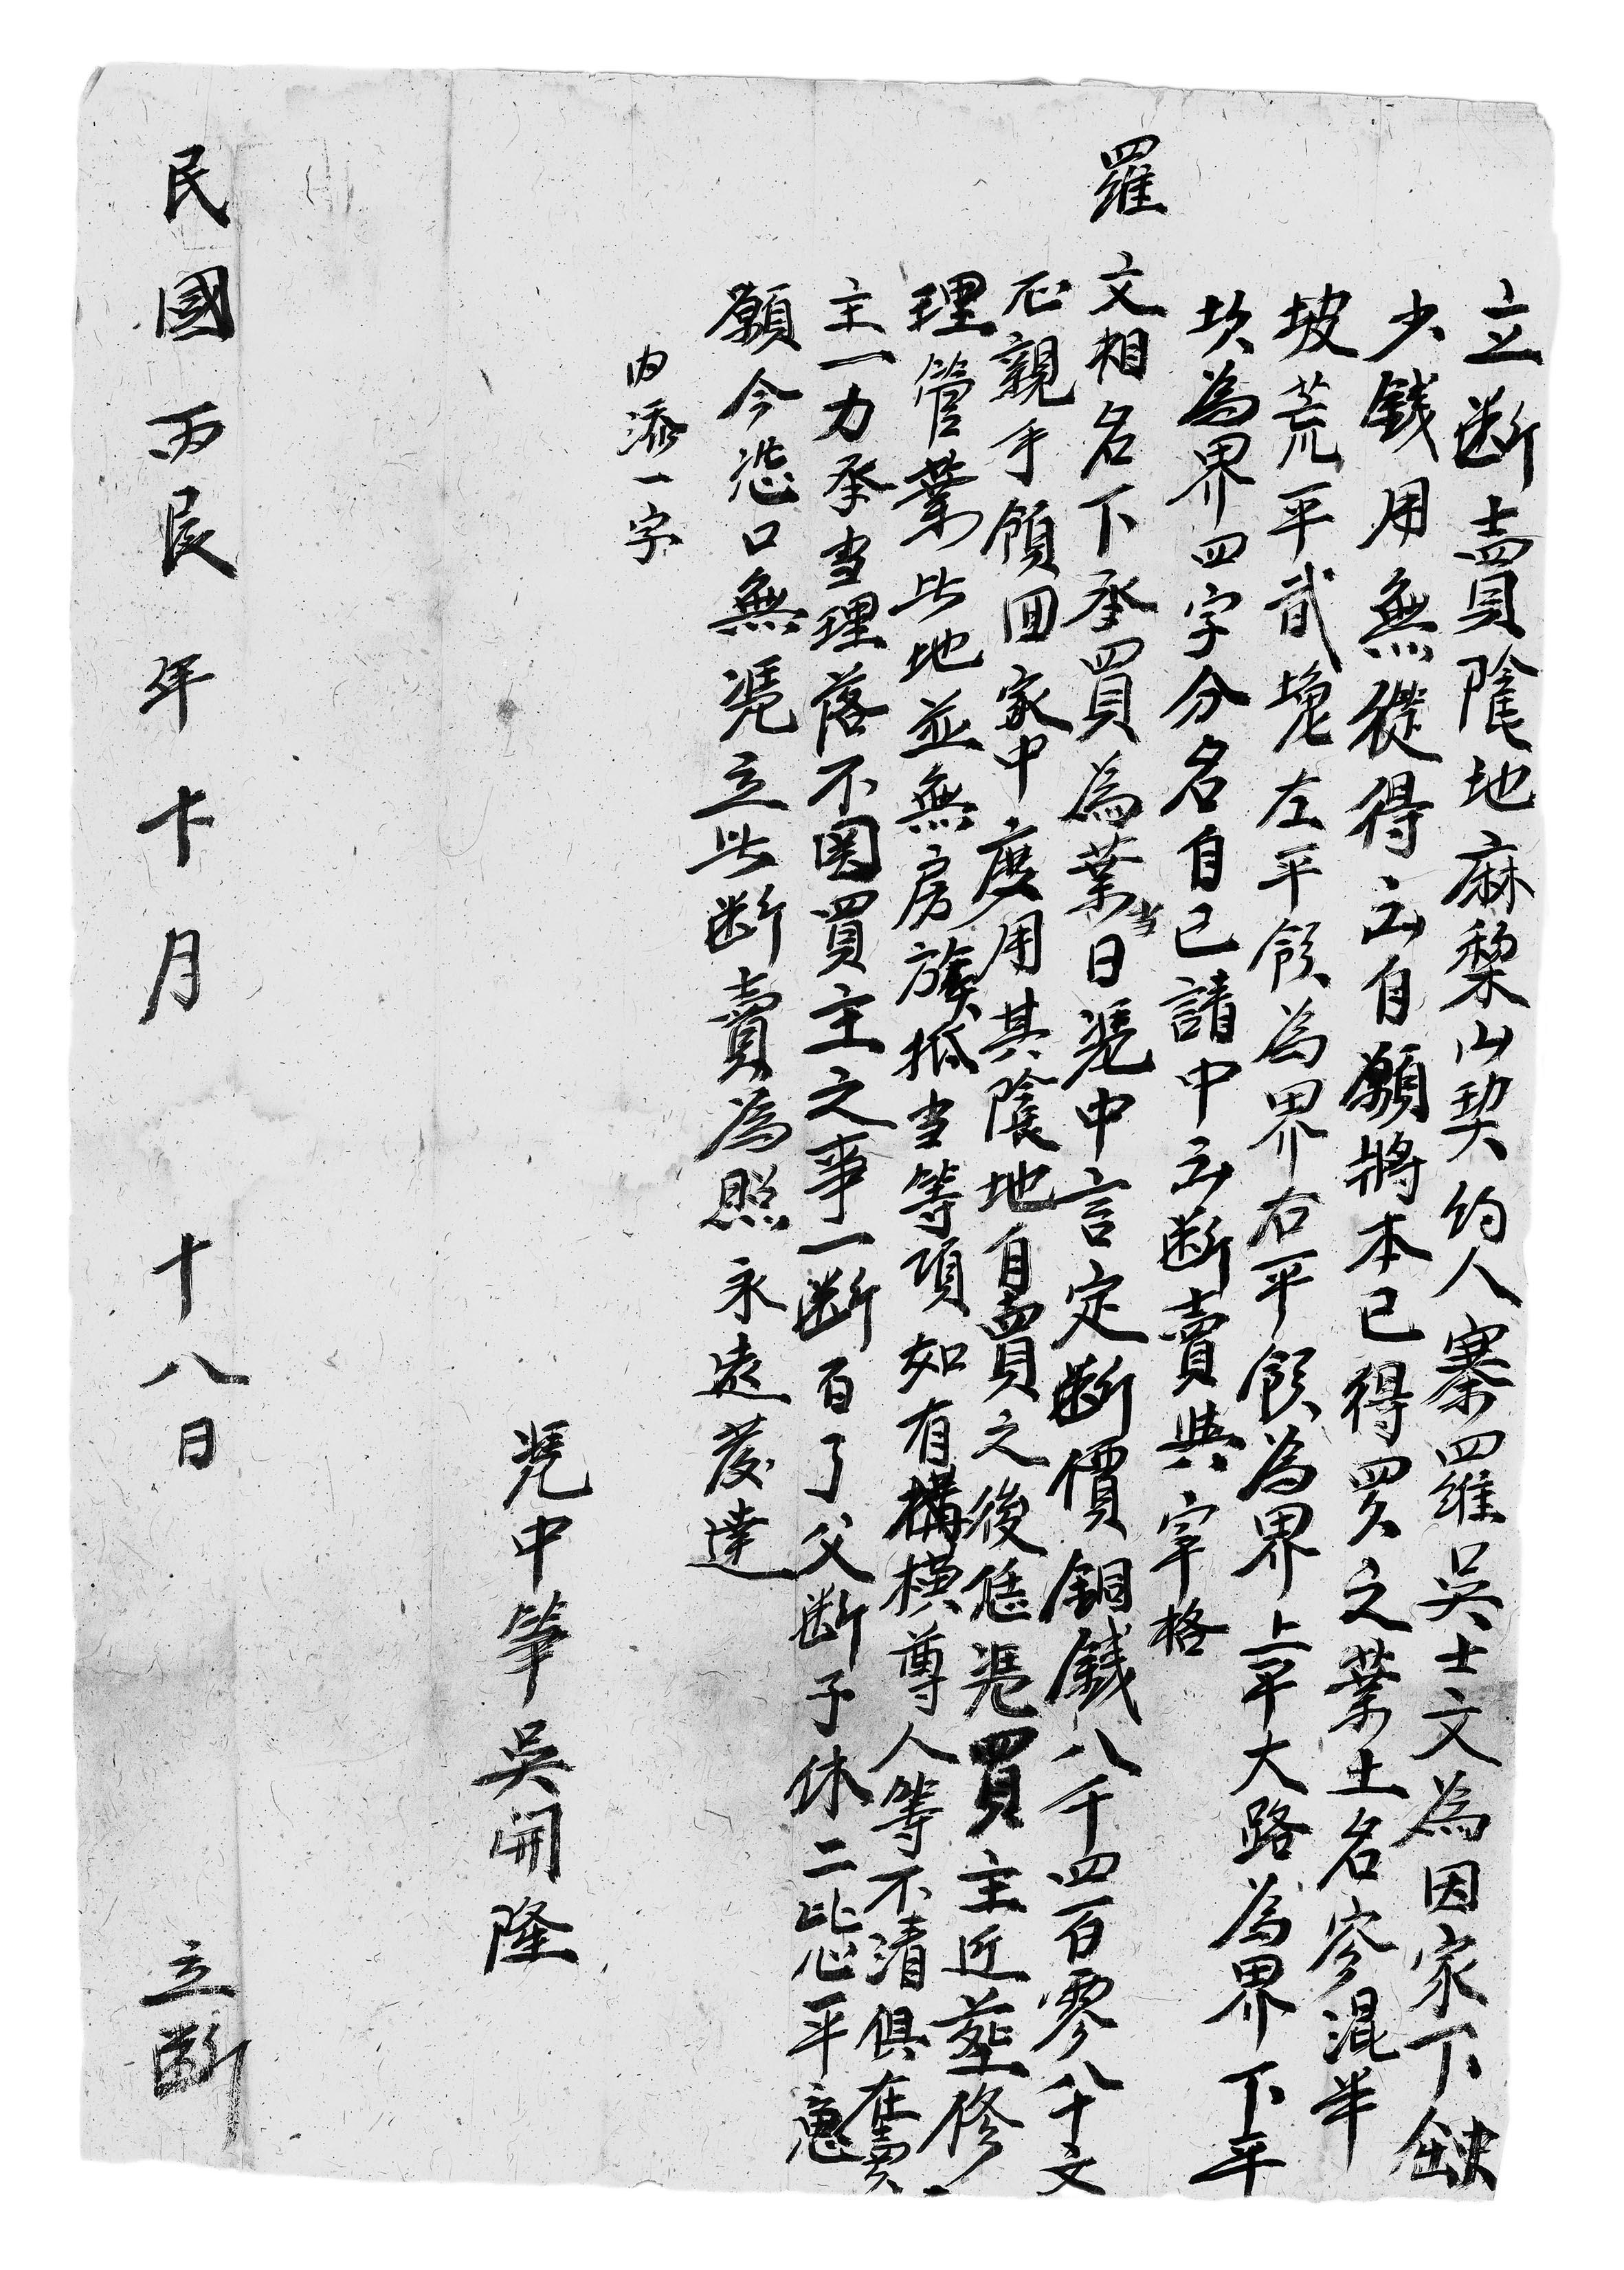 立断賣陰地麻梨山契約人寨羅吳士文為因家下缺
少錢用無從得出自願將本己得買之業土名岑混半
坡荒平貳塊左平領為界右平領為界上平大路為界下平
坎為界四字分名自己請中出断賣與寨格
羅文相名下承買為業当日凴中言定断價銅錢八千四百零八十文
正親手領回家中度用其陰地自賣之後恁凴買主近塟修
理管業此地並無房族抵当等項如有搆橫尊人等不清俱在賣
主一力承当理落不関買主之事一断百了父断子休二比心平意
願今恐口無凴立此断賣為照永遠發達
内添一字
凴中筆吳開隆
民國丙辰年十月十八日立断